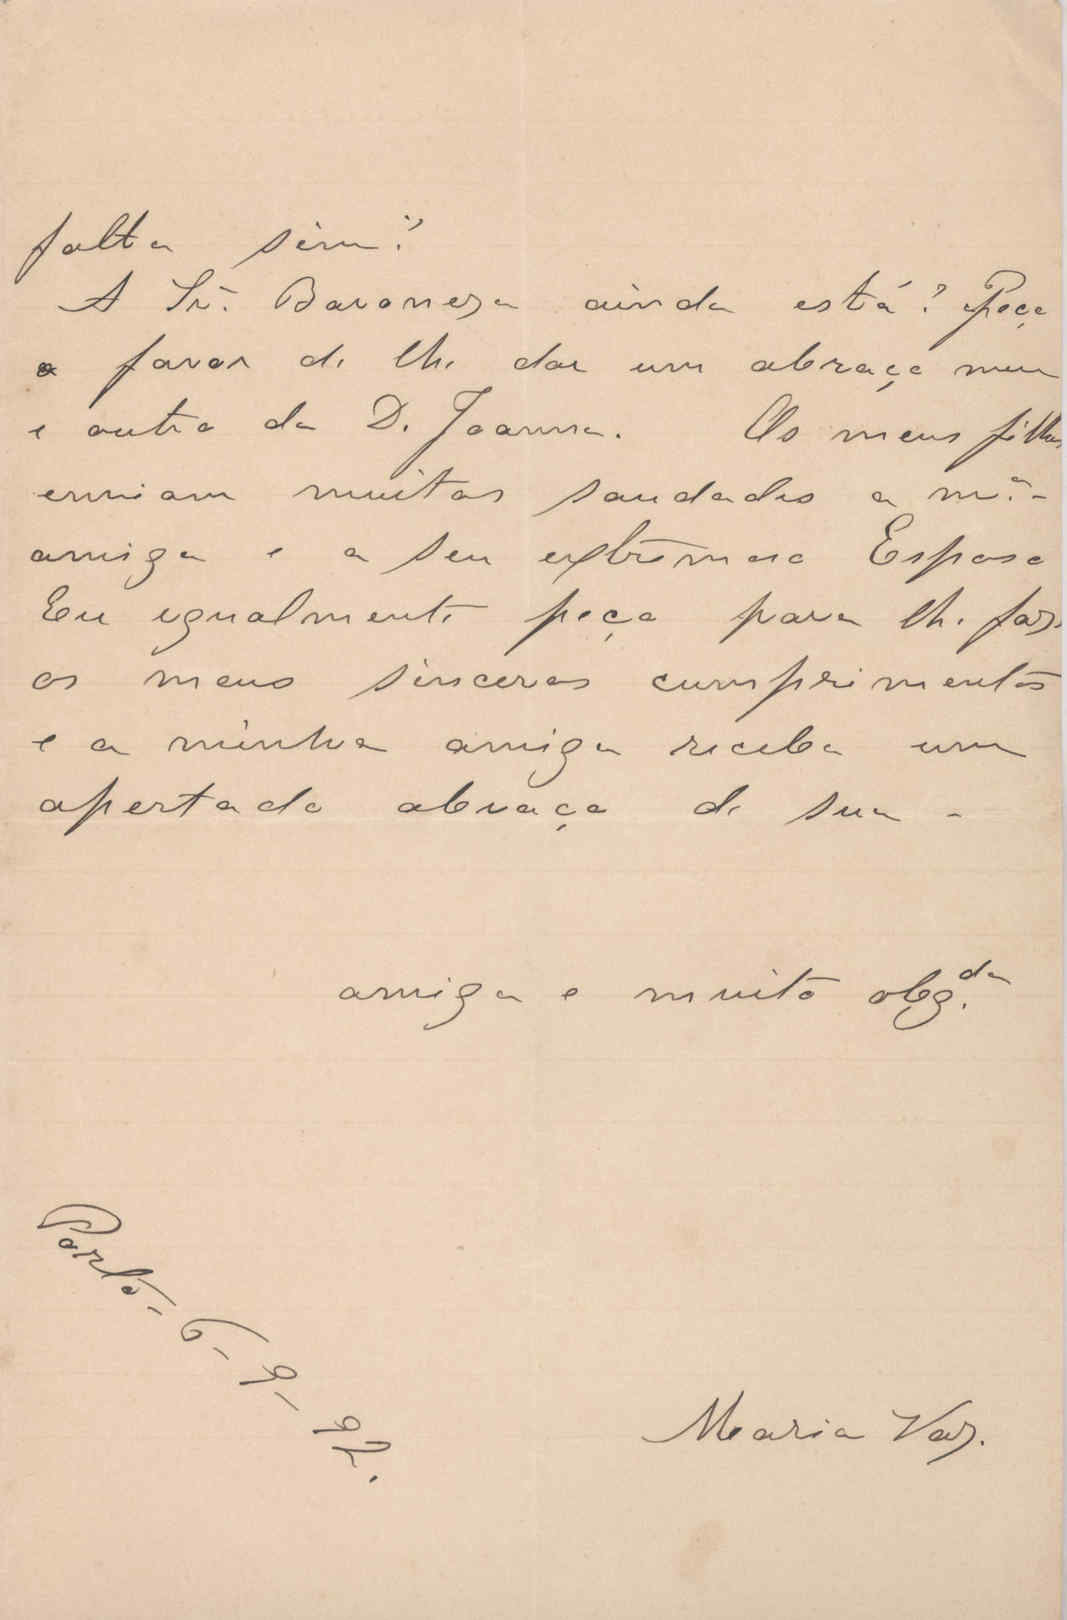 falta sim?
A Srª. Baroneza ainda está? Peço
o favor de lhe dar um abraço meu
e outro da D. Joanna. Os meus filhos
enviam muitas saudades a mª. -
amiga e a seu extremoso Esposo
Eu egualmente peço para lhe faze
os meus sinceros cumprimentos
e a minha amiga receba um
apertado abraço de sua -
amiga e muito obg.da
Porto - 6 - 9 - 92.
Maria Vaz.